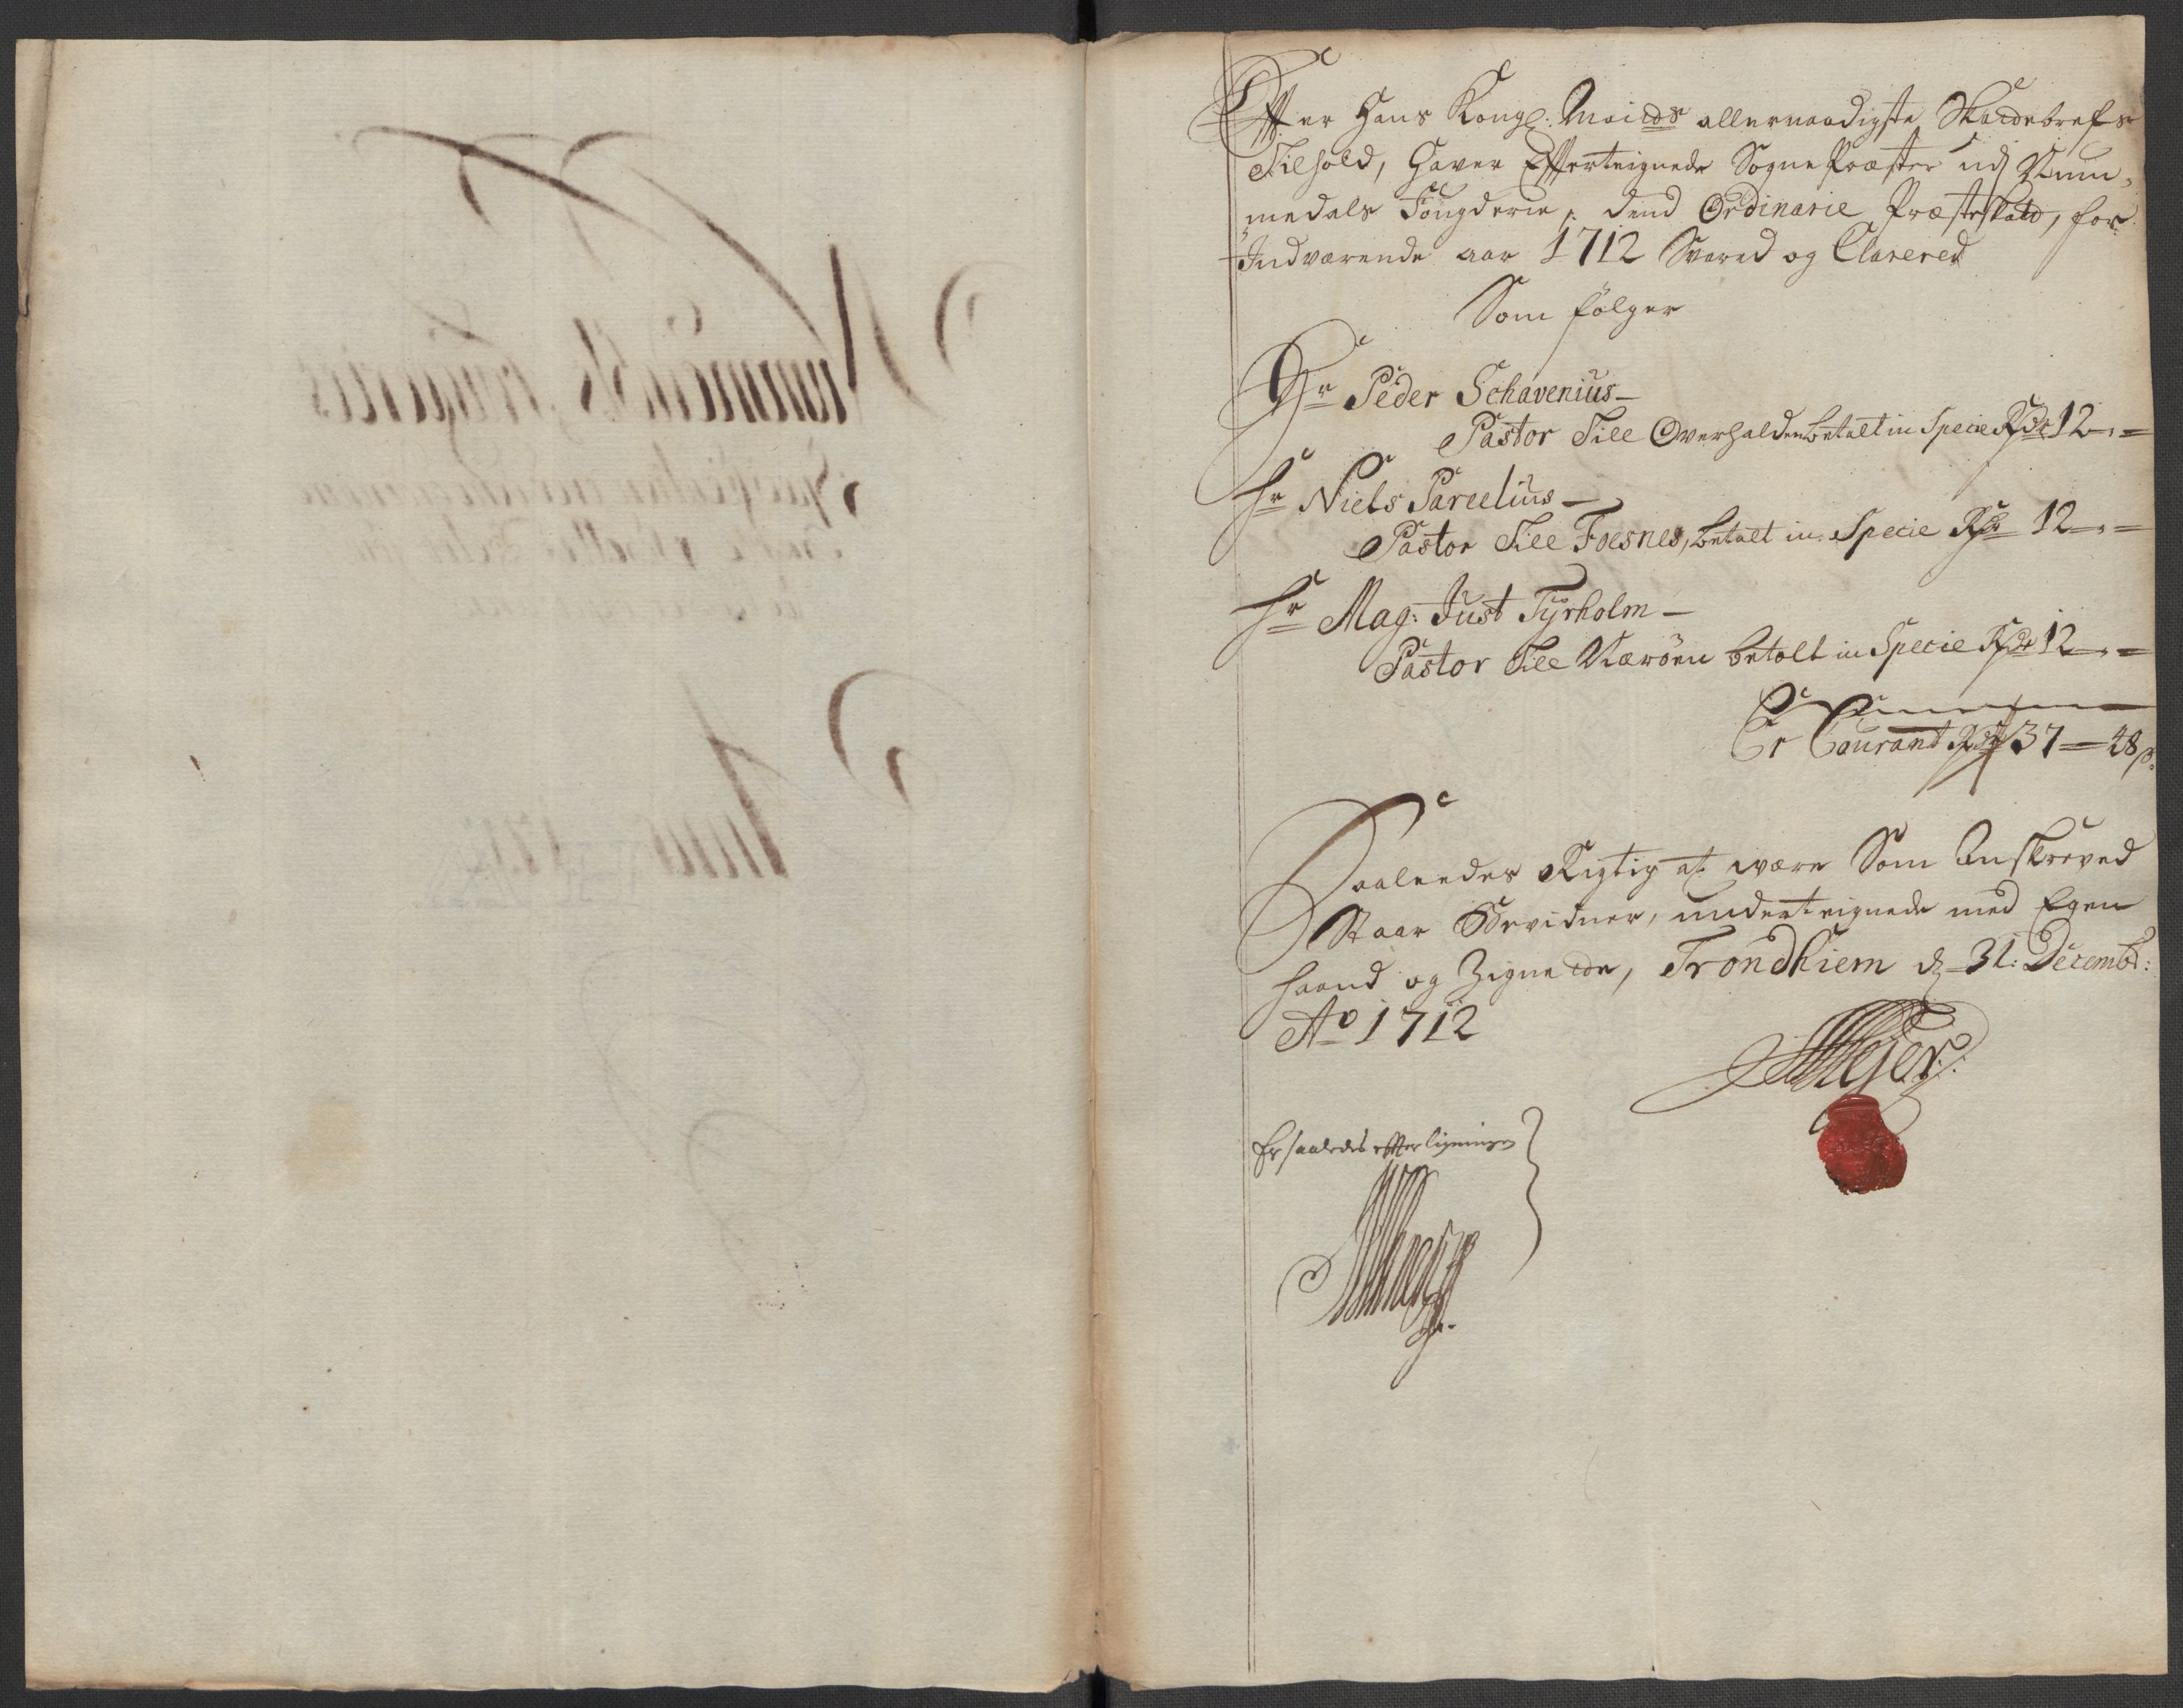 Effter Hans Kongl: Maitds allernaadigste Skattebrefs
Tilhold, Haver Effterteignede Sogne Præster udj Num„
medals Fougderie, dend Ordinarie Præsteskatt, for
Indværende aar 1712 Svared og Clarered
Som følger
Hr Peder Schavenius –
Pastor Till Overhalden betalt in Specie Rdr 12 – „ –
Hr Niels Parcelius –
Pastor Till Foesnes, betalt in Specie Rdr 12 – „ –
Hr Mag: Just Tyrholm –
Pastor Till Nærøen betalt in Specie Rdr 12 – „ –
Er Courant Rdr 37 – 48 s.
Saaleedes Rigtig at være Som Anskreved
Staar Bevidner, underteignede med Egen
haand og Zignette, Trondhiem d. 31: Decembr:
Ao 1712
Er saaledes effter ligningen